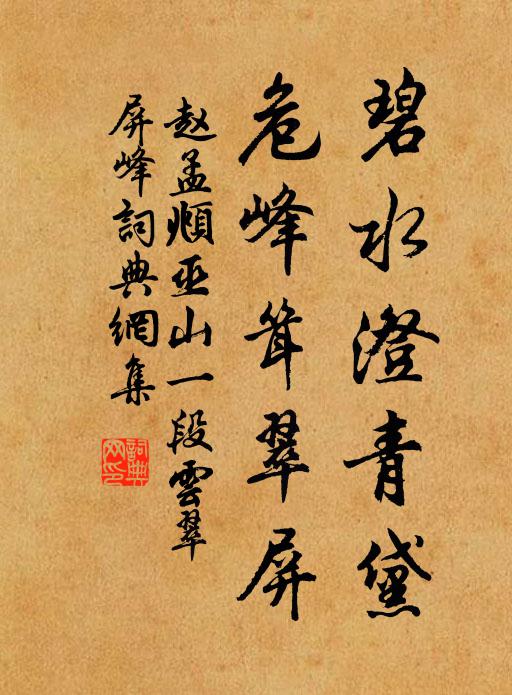 碧水澄青黛
危峰耸翠屏
赵孟頫巫山一段雲翠
屏峰詞典網集
詞典網印